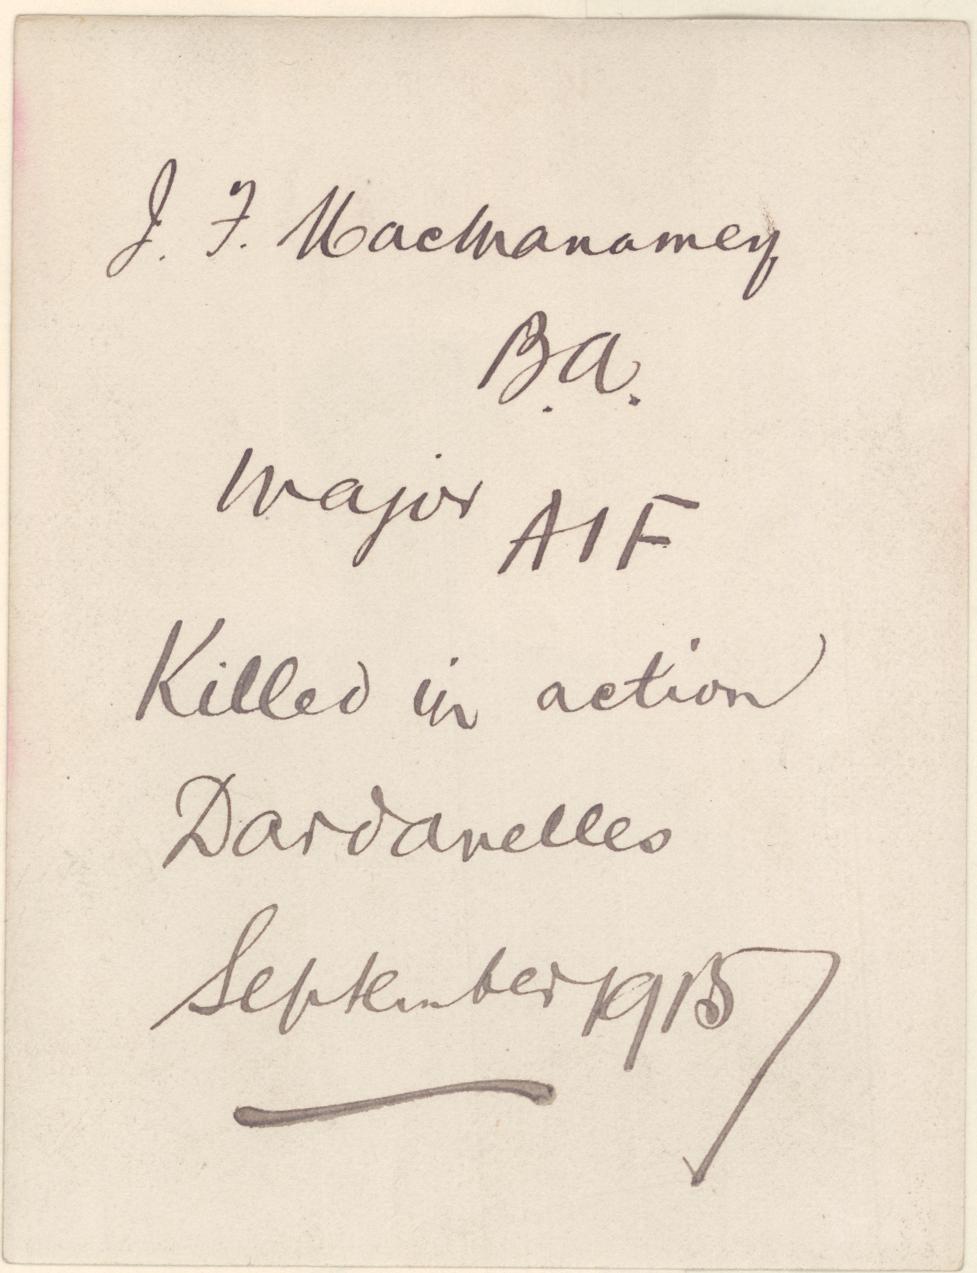 J. F. MacManamey
B.A.
Major AIF
Killed in action
Dardanelles
September 1915